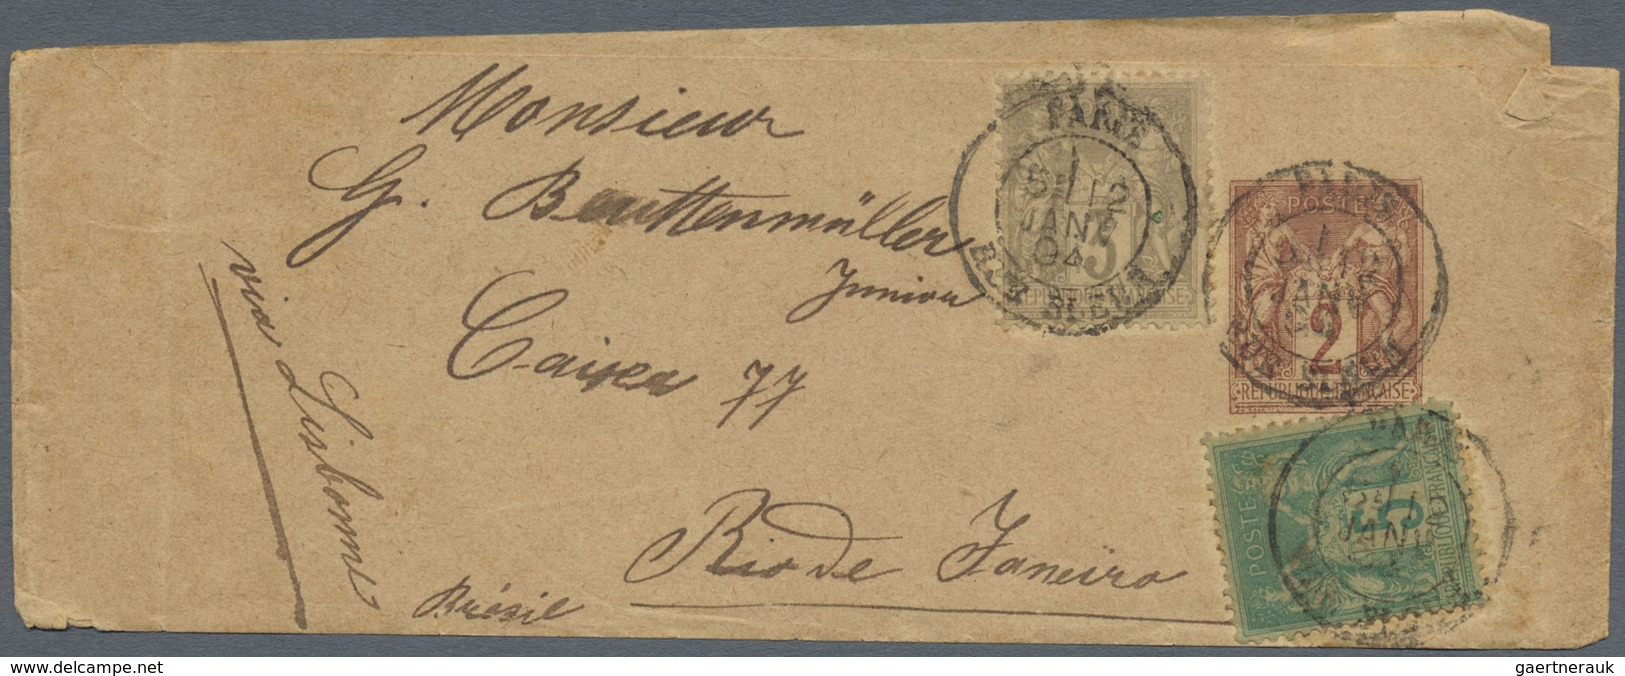 Monsieur
G. Beuttenmüller
Junior
Caixa 77
Rio de Janeiro
Brésil
via Lisbonne
PARIS
5E 12
JANV
94
R. BLEUE
3
REPUBLIQUE FRANÇAISE
PARIS
POSTES
JANV
2
REPUBLIQUE FRANÇAISE
PARIS
POSTES
5
JANV
REPUBLIQUE FRANÇAISE
www.delcampe.net
gaertnerauk